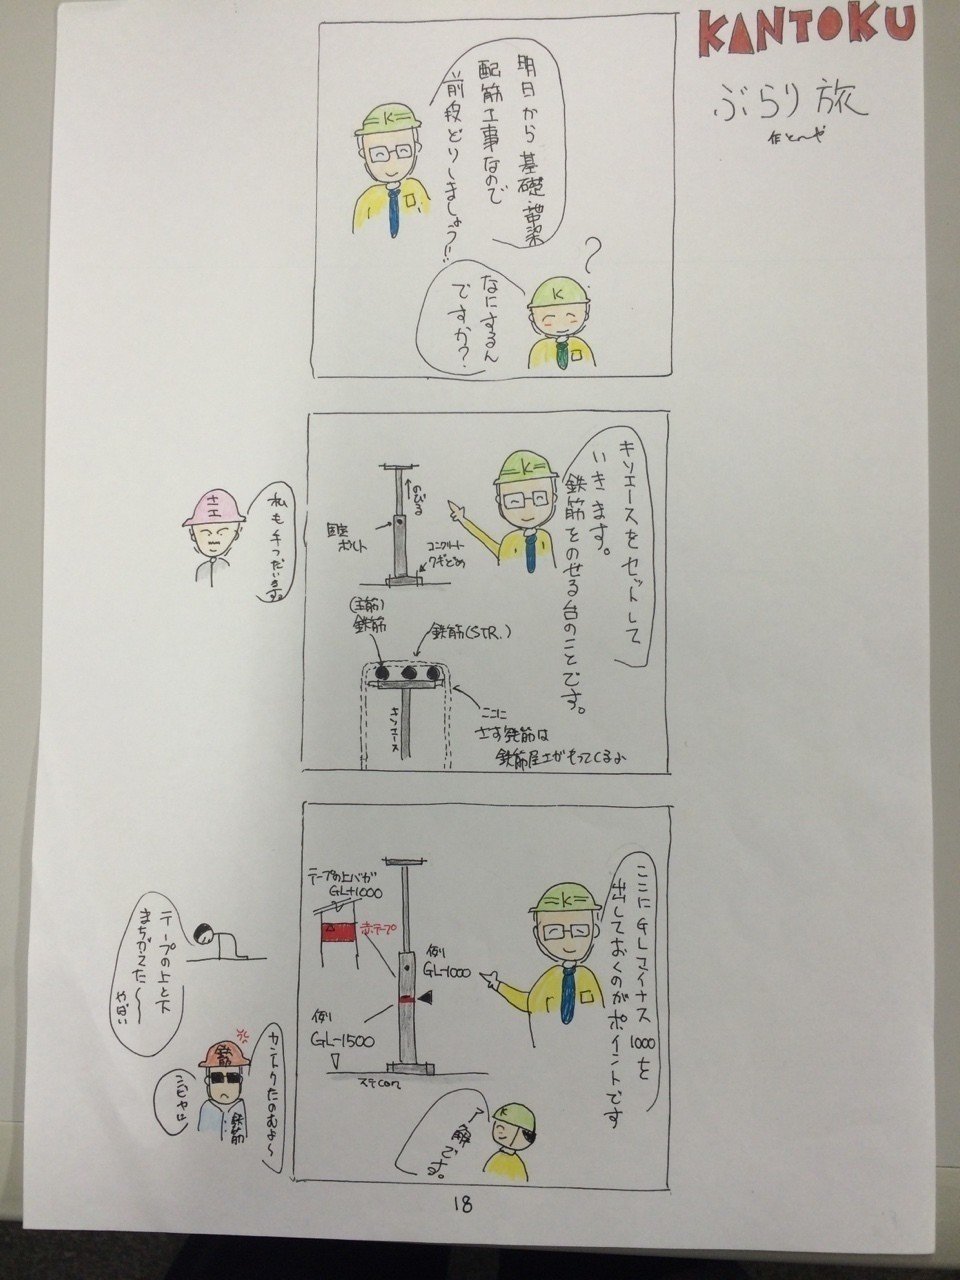 KANTOKU
ぶらり旅
作 とーや
明日から基礎・地中梁
配筋工事なので
前段どりしましょう!!
K
?
なにするん
ですか?
K
キソエースをセットして
いきます。
鉄筋をのせる台のことです。
K
のびる
固定
ボルト
コンクリート
クギどめ
(主筋)
鉄筋
鉄筋(STR.)
キソエース
ここに
さす鉄筋は
鉄筋屋さんがもってくるよ
私も手つだいます。
ここにGLマイナス1000を
出しておくのがポイントです
K
テープの上バが
GL-1000
赤テープ
例)
GL-1000
例)
GL-1500
ステcon
了解です。
K
テープの上と下
まちがえた〜
やばい
カントクたのむよ〜
鉄筋
鉄筋
18